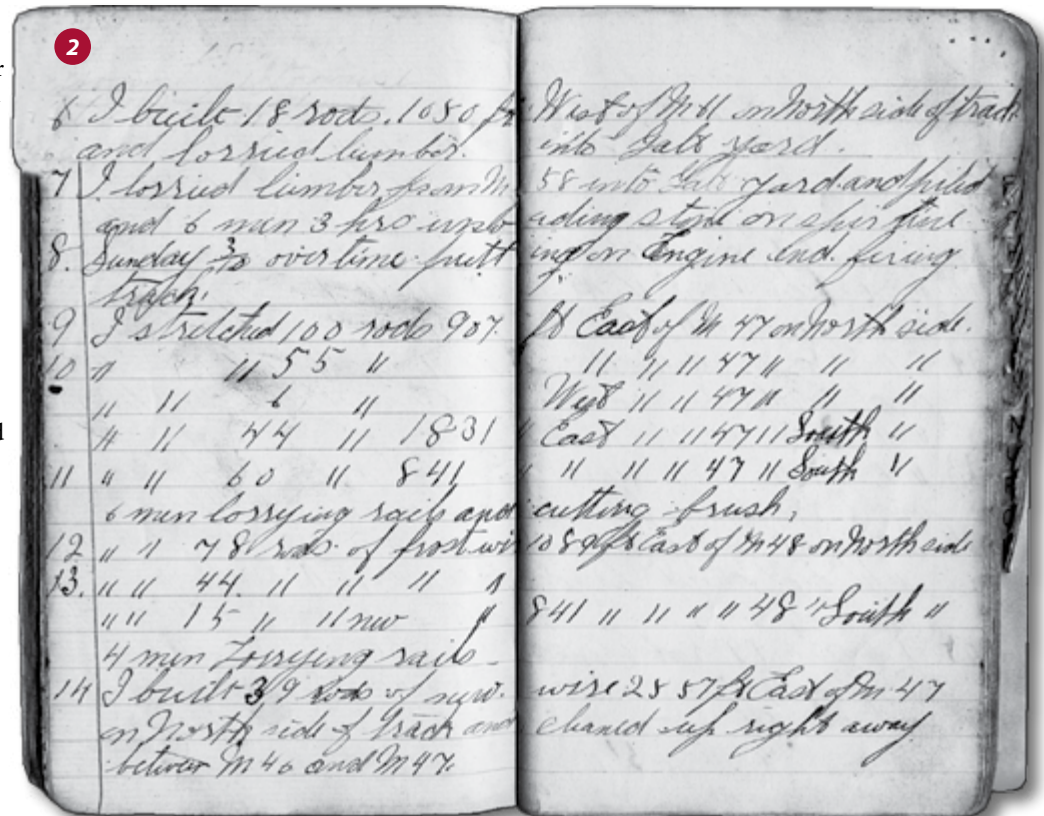 2
6 I built 18 rods. 1050 ft West of M 61 on North side of track
and lorried lumber. into Galt yard.
7 I lorried lumber from M 58 into Galt yard and piled
and 6 men 3 hrs unlo ading stone on
8. Sunday 3/10 overtime putt ing on Engine and firing
track.
9 I stretched 100 rods 907. ft East of M 47 on North side.
10 " " 55 " " " " 47 " " "
" " 6 " West " " 47 " " "
" " 44 " 1831 " East " " 47 " South "
11 " " 60 " 841 " " " " 47 " South "
6 men lorrying rails and cutting brush,
12 " " 78 rods of frost wi 1089 ft East of M 48 on North side
13. " " 44. " " " "
" " 15 " " new " 841 " " " " 48 " South "
4 men Lorrying rails -
14 I built 39 rods of new. wire 2557 ft East of M 47
on North side of track and cleaned up right away
between M 46 and M 47.